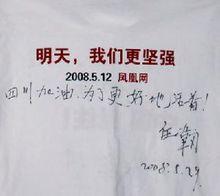 明天，我们更坚强
2008.5.12 凤凰网
四川加油,为了更好地活着!
2008.5.29